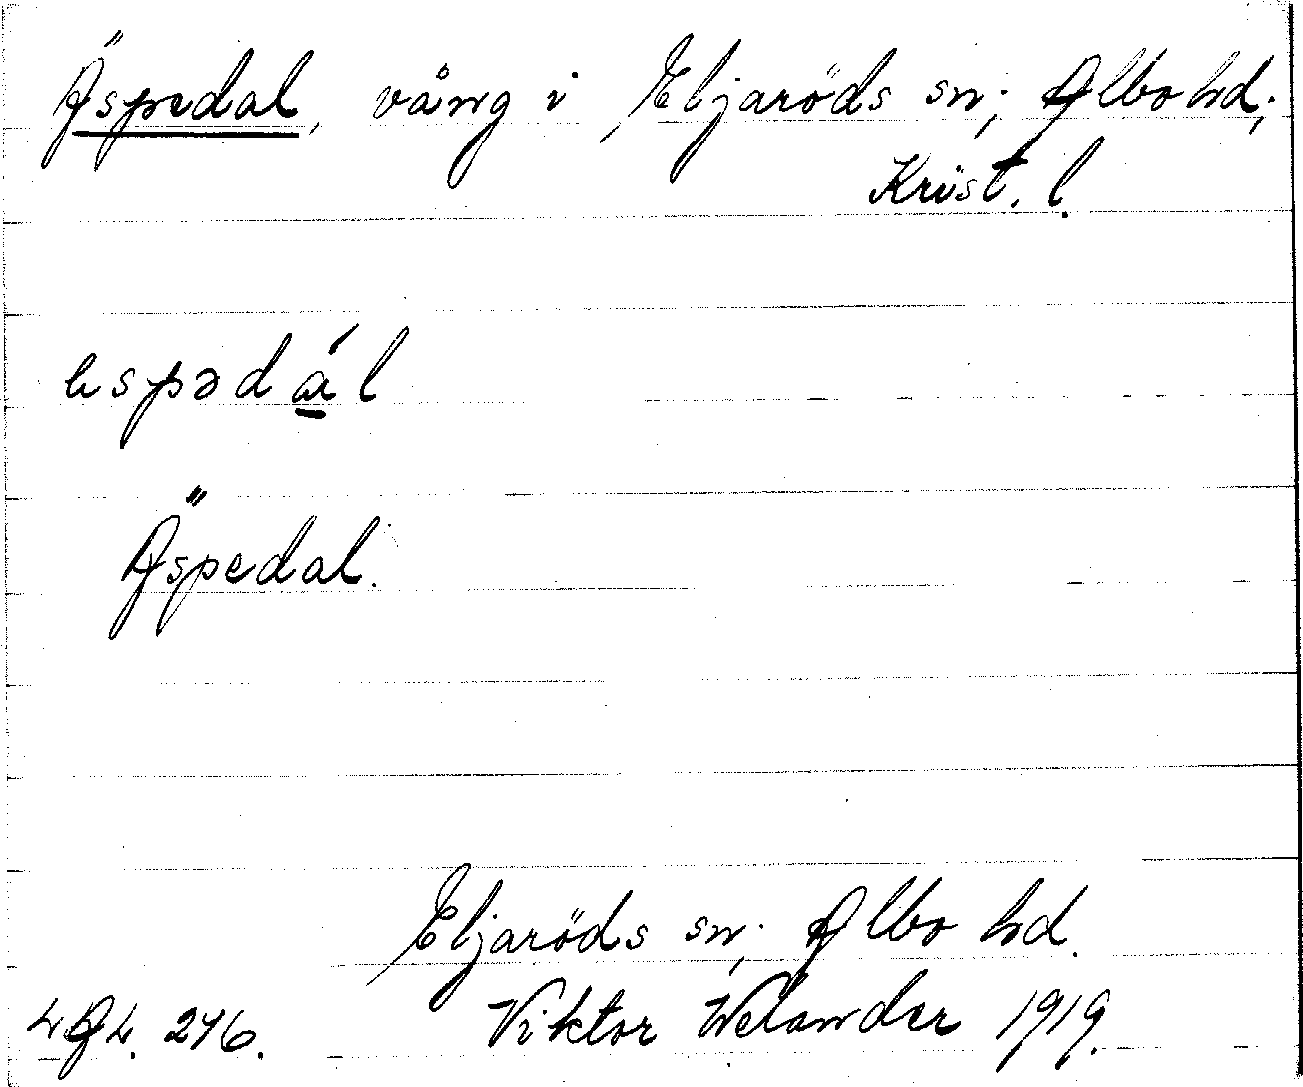 Äspedal, vång i Eljaröds sn; Albo hd;
Krist. l.
espədál
Äspedal.
Eljaröds sn; Albo hd.
Viktor Welander 1919.